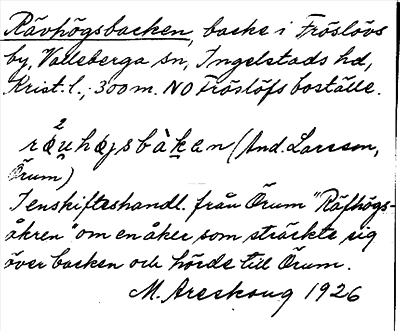 Rävhögsbacken, backe i Fröslövs
by, Valleberga sn, Ingelstads hd,
Krist. l., 300 m. NO Fröslöfs boställe.
2
ræu̯højsbàkan (And. Larsson,
Örum)
I enskifteshandl. från Örum "Räfhögs-
åkren" om en åker som sträckte sig
över backen och hörde till Örum.
M. Areskoug 1926